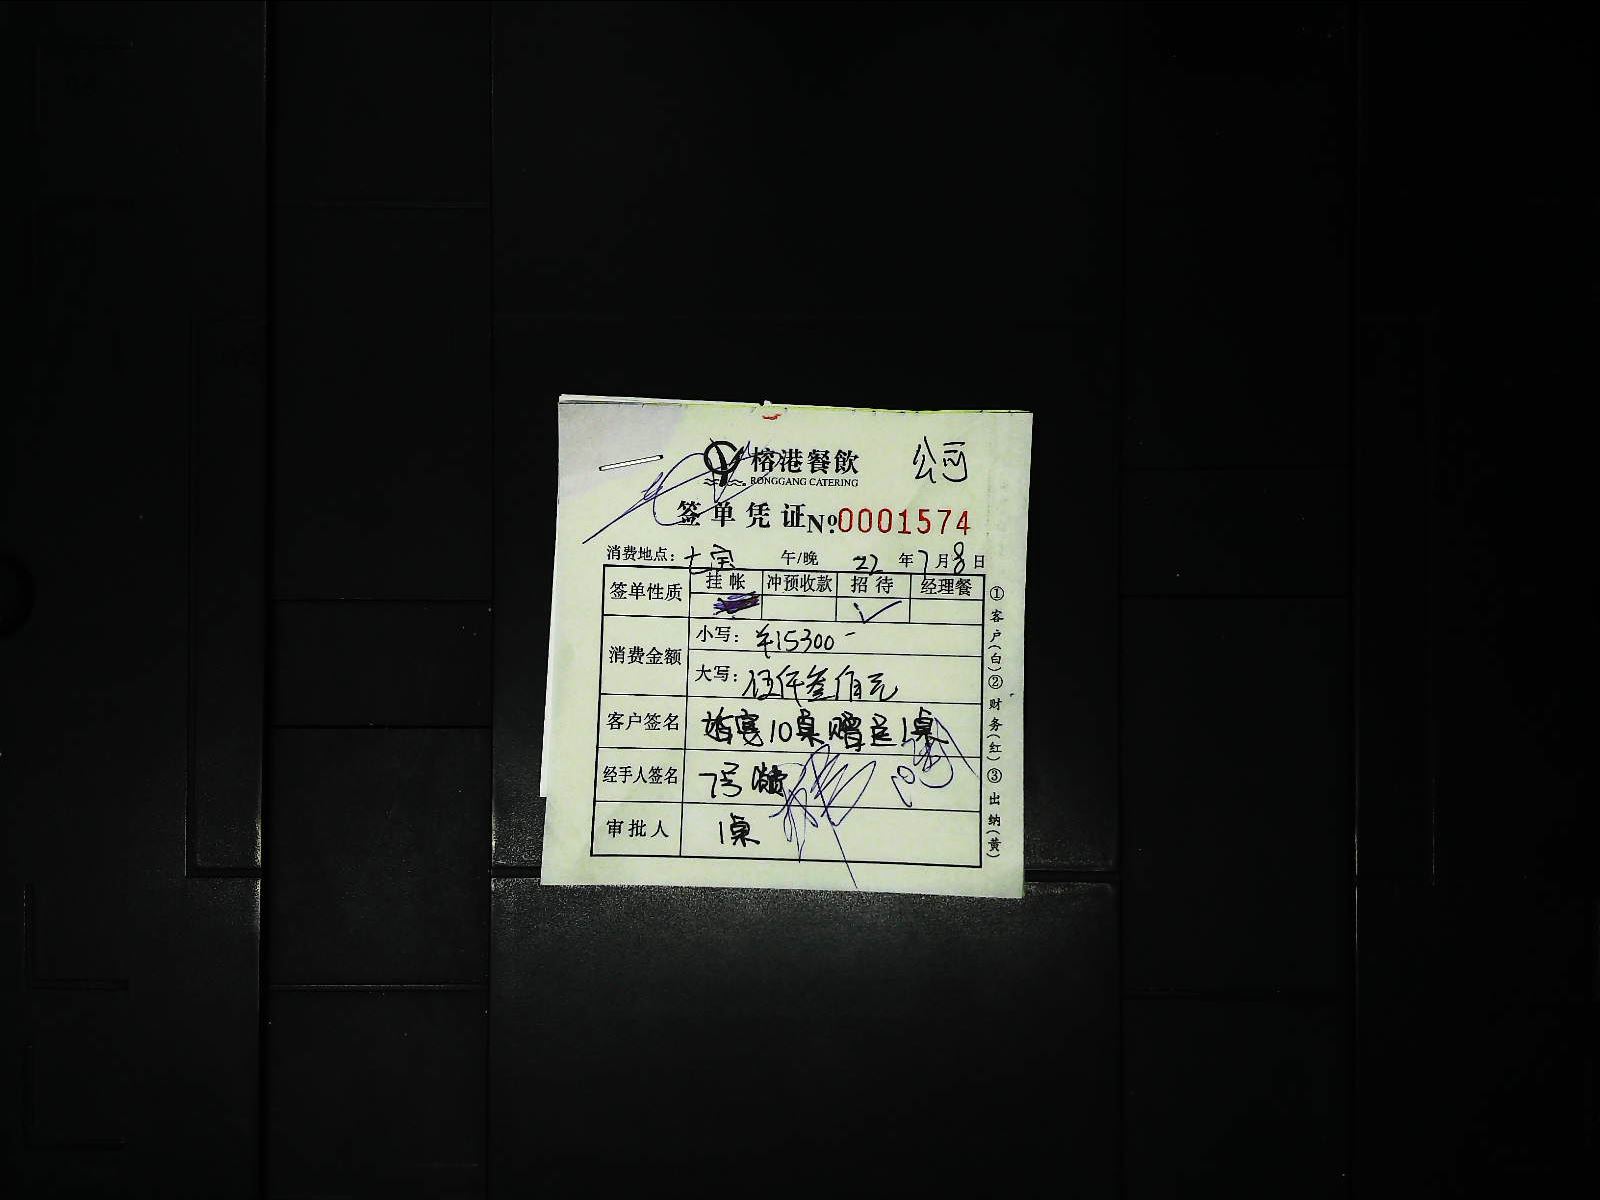 公司
榕港餐飲
RONGGANG CATERING
签单凭证 №0001574
消费地点：七宝 午/晚 22年7月8日
签单性质 挂帐 冲预收款 招待 经理餐
✓
消费金额 小写：¥15300-
大写：伍仟叁佰元
客户签名 婚宴10桌赠送1桌
经手人签名 7号
审批人 1桌
①客户(白)②财务(红)③出纳(黄)